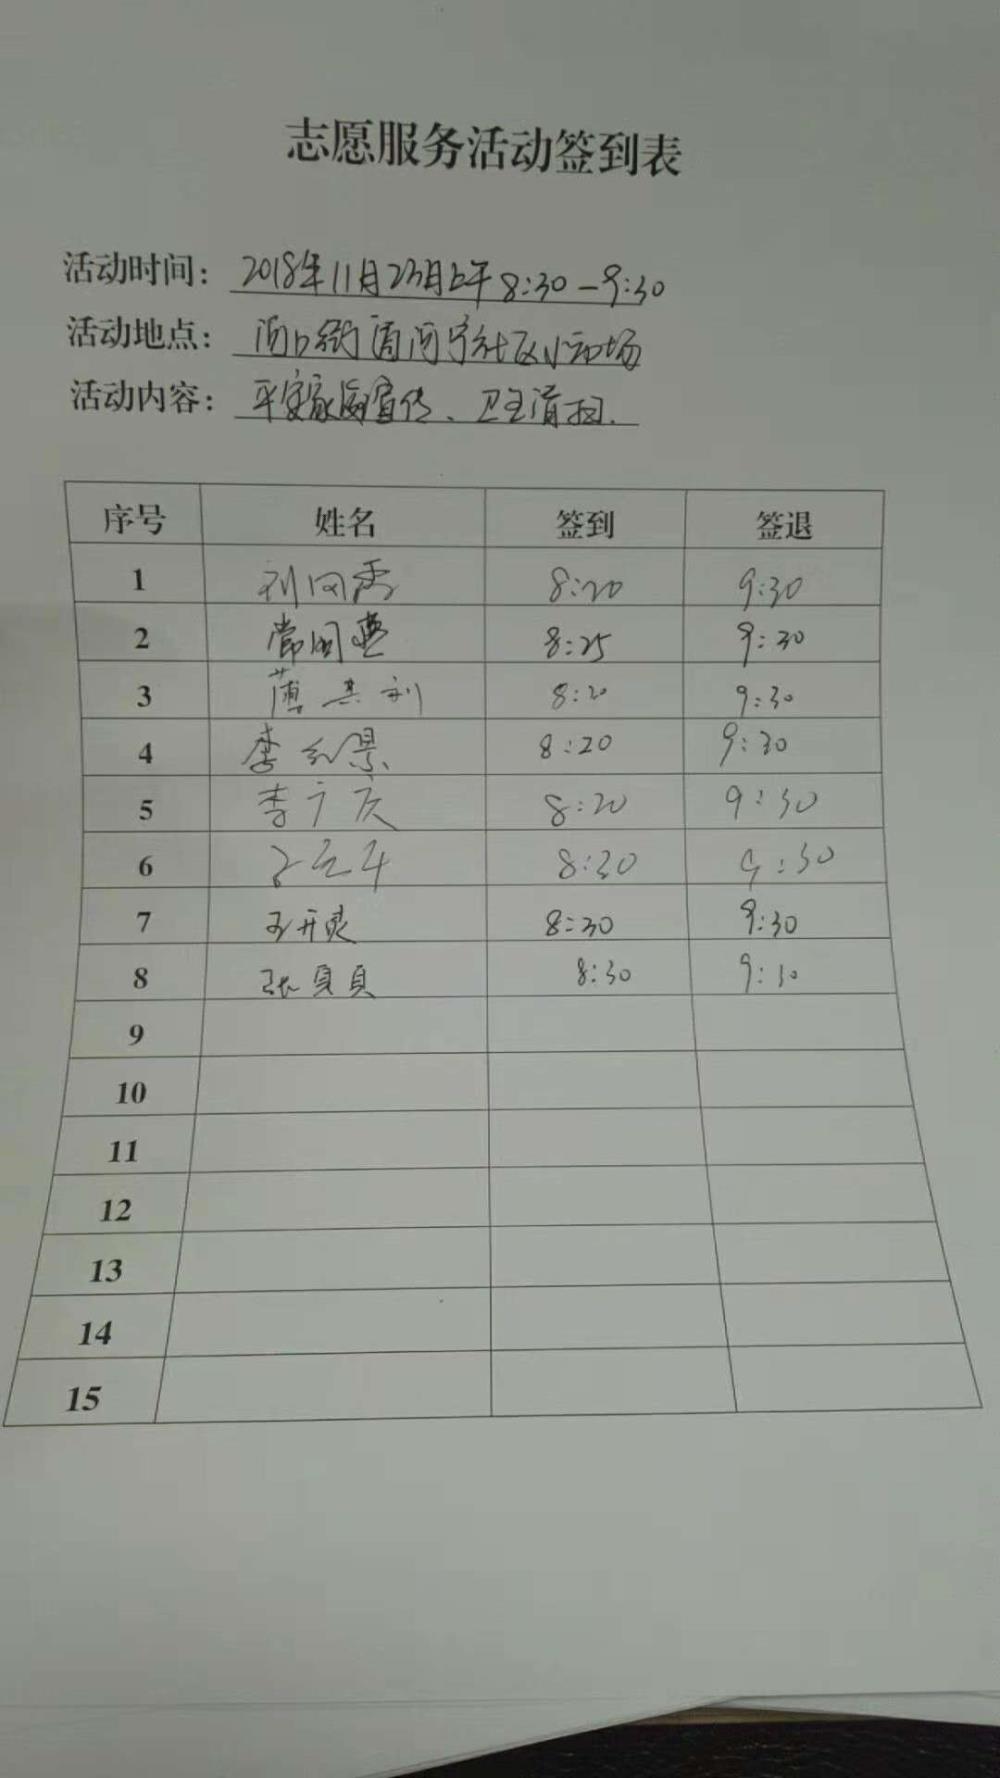 志愿服务活动签到表
活动时间：2018年11月23日上午8:30-9:30
活动地点：河口街道河宁社区小运动场
活动内容：平安家庭宣传、卫生清扫.
序号 姓名 签到 签退
1 刘同秀 8:20 9:30
2 常国燕 8:25 9:30
3 薄其利 8:20 9:30
4 李红景 8:20 9:30
5 李广庆 8:20 9:30
6 8:30 9:30
7 8:30 9:30
8 张贝贝 8:30 9:30
9
10
11
12
13
14
15